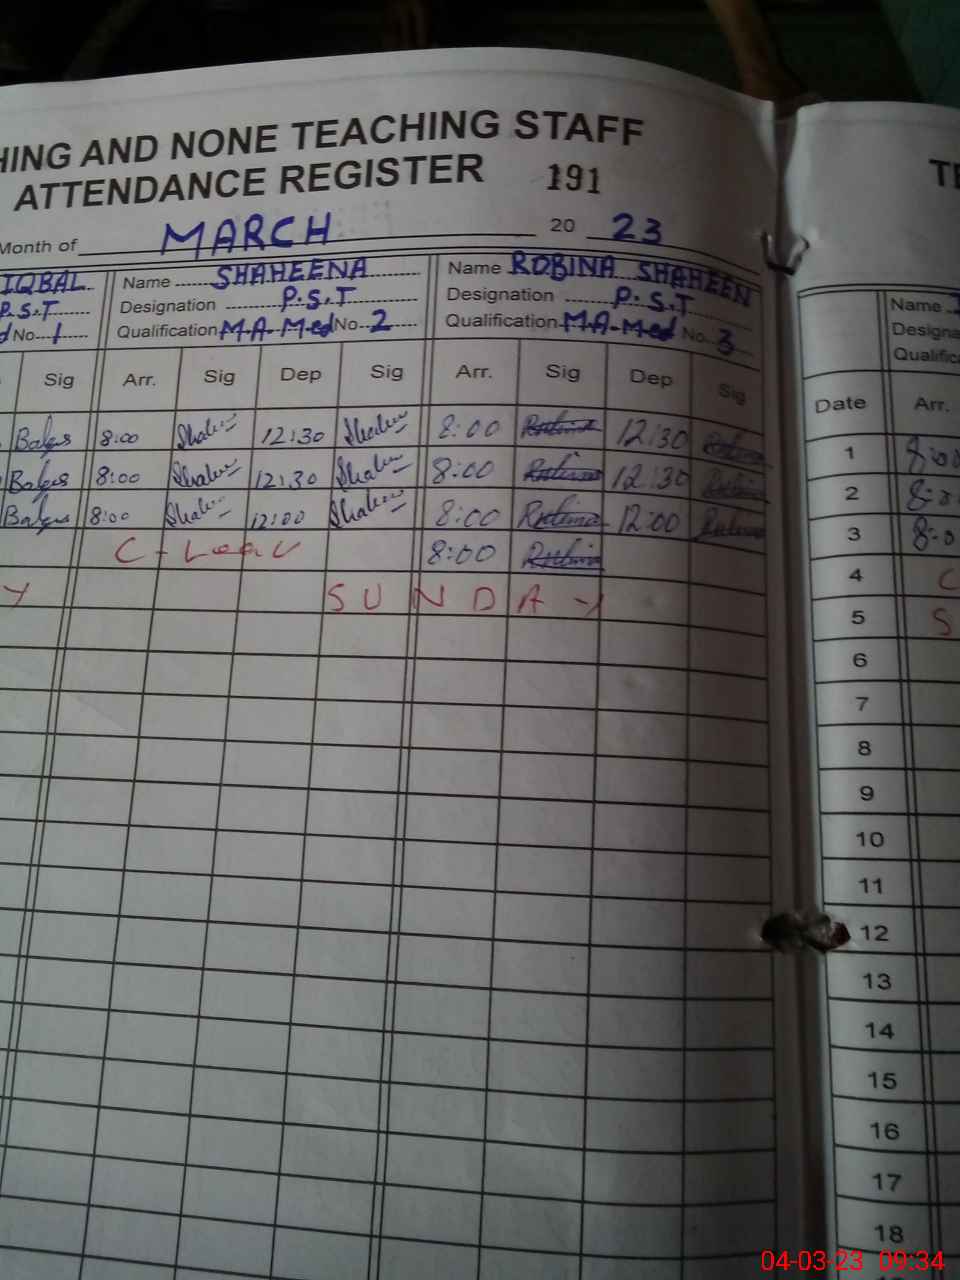 HING AND NONE TEACHING STAFF
ATTENDANCE REGISTER 191
Month of MARCH 20 23
IQBAL Name SHAHEENA Name ROBINA SHAHEEN
P.S.T Designation P.S.T Designation P.S.T
No 1 Qualification M.A-M-ed No 2 Qualification M.A-M-ed No 3
Sig Arr. Sig Dep Sig Arr. Sig Dep Sig
8:00 12:30 8:00 12:30
8:00 12:30 8:00 12:30
8:00 12:00 8:00 12:00
C-Leav 8:00
Y S U N D A Y
TE
Name
Designa
Qualific
Date Arr.
1 8:00
2 8:0
3 8:0
4 C
5 S
6
7
8
9
10
11
12
13
14
15
16
17
18
04-03-23 09:34